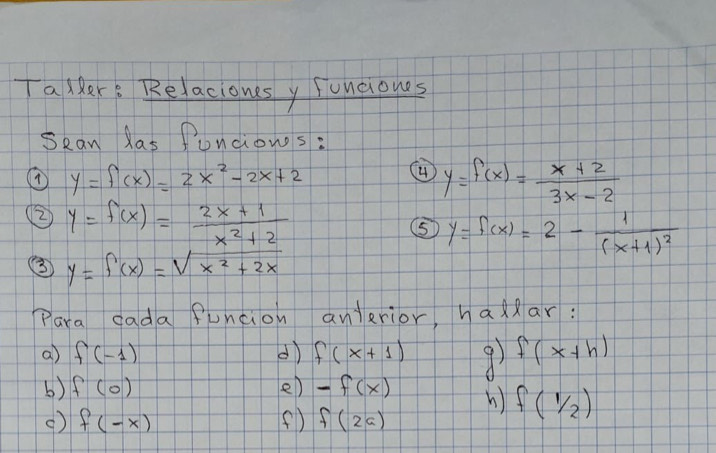 Taller: Relaciones y funciones
Sean las funciones:
① y = f(x) = 2x² - 2x + 2
② y = f(x) = (2x + 1)/(x² + 2)
③ y = f(x) = √(x² + 2x)
④ y = f(x) = (x + 2)/(3x - 2)
⑤ y = f(x) = 2 - 1/(x+1)²
Para cada función anterior, hallar:
a) f(-1)
b) f(0)
c) f(-x)
d) f(x+1)
e) -f(x)
f) f(2a)
g) f(x+h)
h) f(1/2)